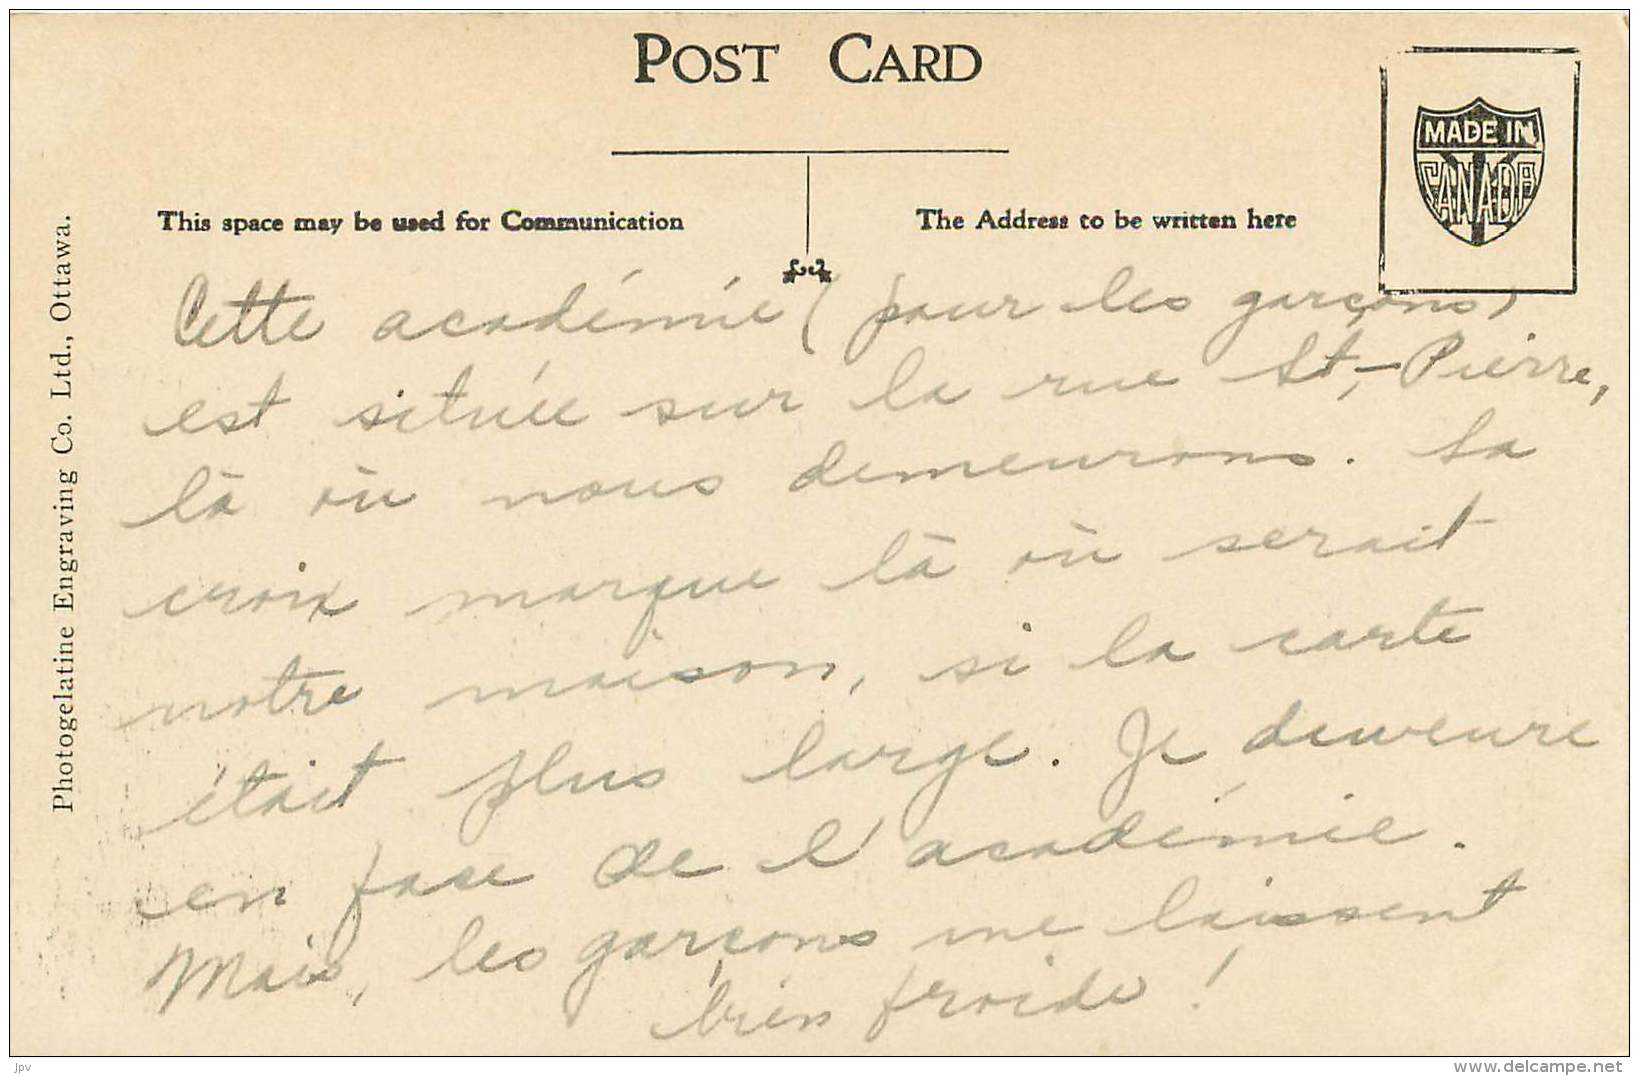 POST CARD
MADE IN
CANADA
This space may be used for Communication
The Address to be written here
Photogelatine Engraving Co. Ltd., Ottawa.
Cette académie (pour les garçons)
est située sur la rue St,-Pierre,
là où nous demeurons. La
croix marque là où serait
notre maison, si la carte
était plus large. Je demeure
en face de l'académie.
Mais, les garçons me laissent
bien froide!
jpv
delcampe.net